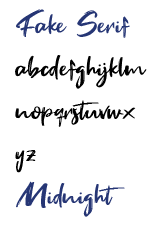 Fake Serif
abcdefghijklm
nopqrstuvwx
yz
Midnight